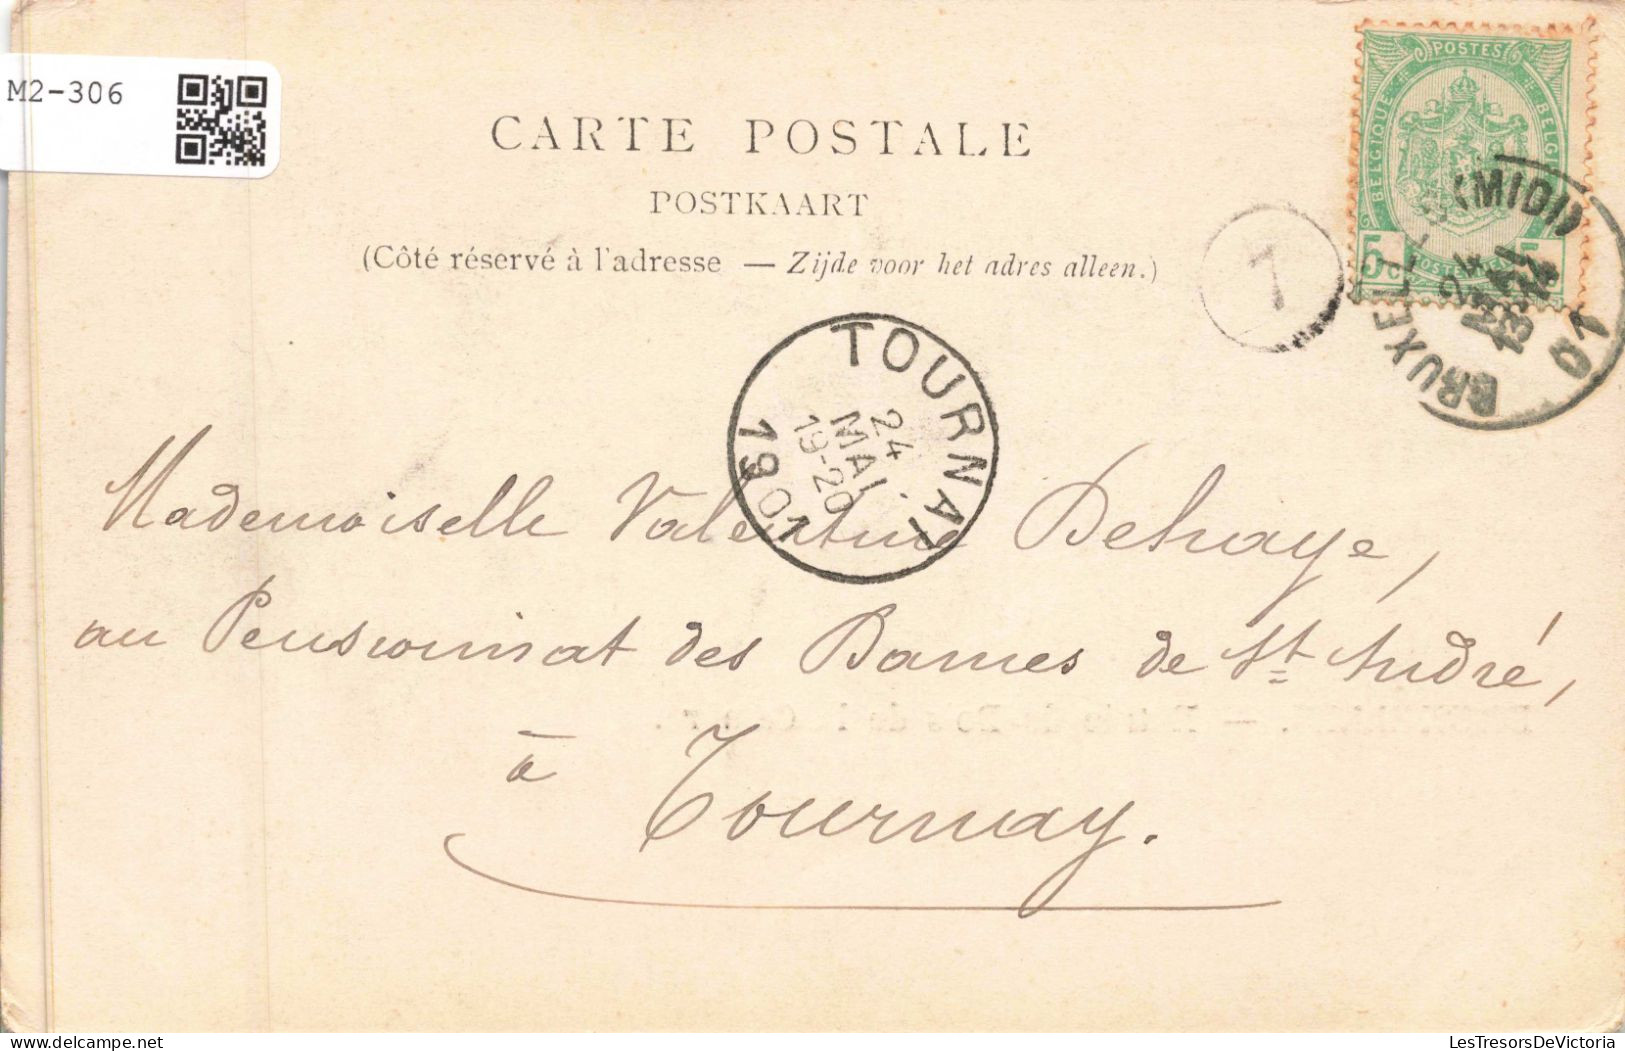 M2-306
CARTE POSTALE
POSTKAART
(Côté réservé à l'adresse — Zijde voor het adres alleen.)
POSTES
BELGIQUE
BELGIË
5 C
BRUXELLES (MIDI)
24
MAI
01
1
TOURNAI
24
MAI
19-20
1901
Mademoiselle Valentine Dehaye,
au Pensionnat des Dames de St André,
à
Tournay.
LesTresorsDeVictoria